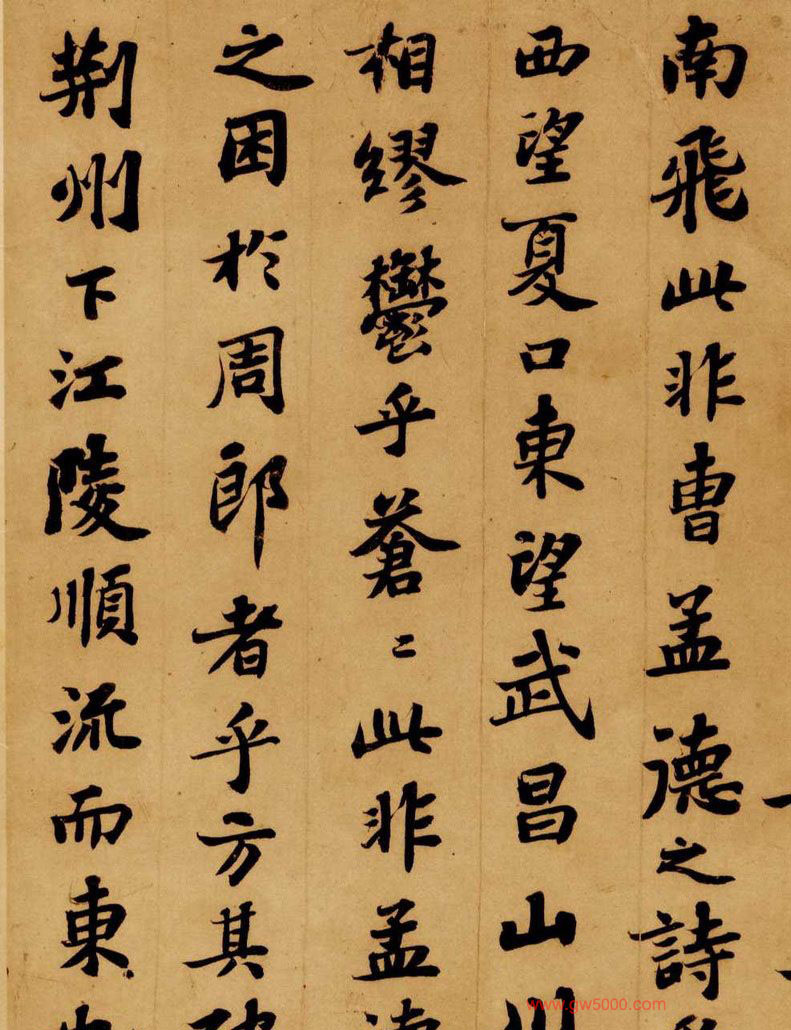 南飛此非曹孟德之詩
西望夏口東望武昌山川
相繆鬱乎蒼〻此非孟德
之困於周郎者乎方其破
荆州下江陵順流而東
www.gw5000.com